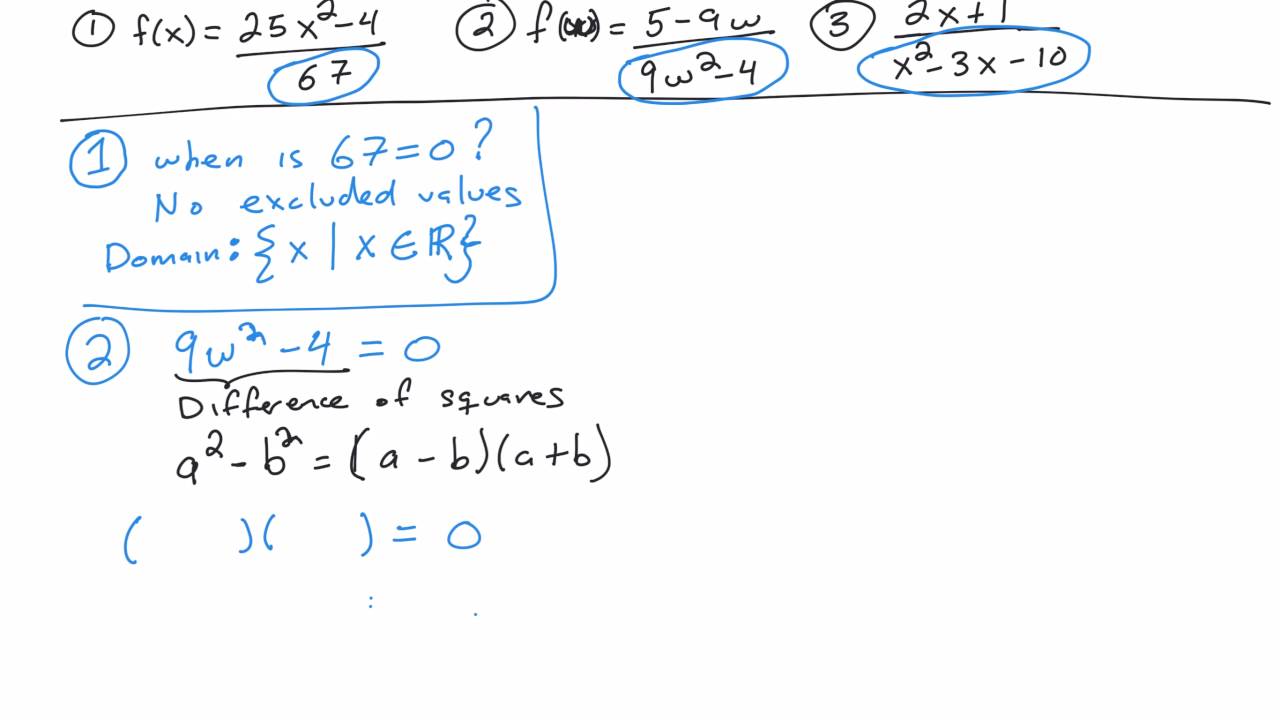 ① f(x) = 25x²-4 / 67 ② f(w) = 5-9w / 9w²-4 ③ 2x+1 / x²-3x-10
① when is 67=0?
No excluded values
Domain: {x | x ∈ ℝ}
② 9w²-4 = 0
Difference of squares
a²-b² = (a-b)(a+b)
( )( ) = 0